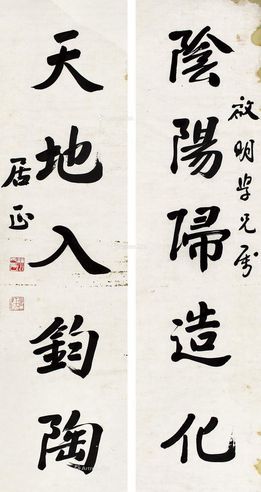 陰陽歸造化
啟明學兄屬
天地入鈞陶
居正